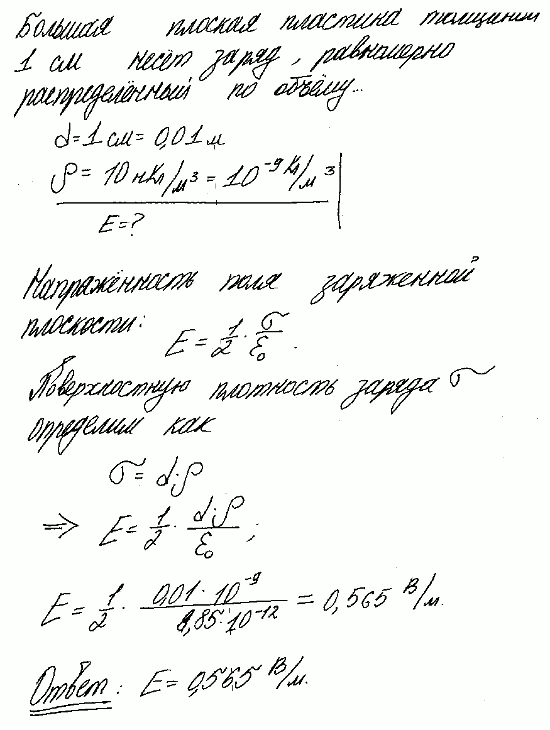 Большая плоская пластина толщиной
1 см несёт заряд, равномерно
распределённый по объёму...
d = 1 см = 0,01 м
ρ = 10 нКл/м³ = 10⁻⁹ Кл/м³
E = ?
Напряжённость поля заряженной
плоскости: E = 1/2 · σ/ε₀.
Поверхностную плотность заряда σ
определим как
σ = d·ρ
⇒ E = 1/2 · d·ρ/ε₀;
E = 1/2 · 0,01 · 10⁻⁹/8,85·10⁻¹² = 0,565 В/м.
Ответ: E = 0,565 В/м.